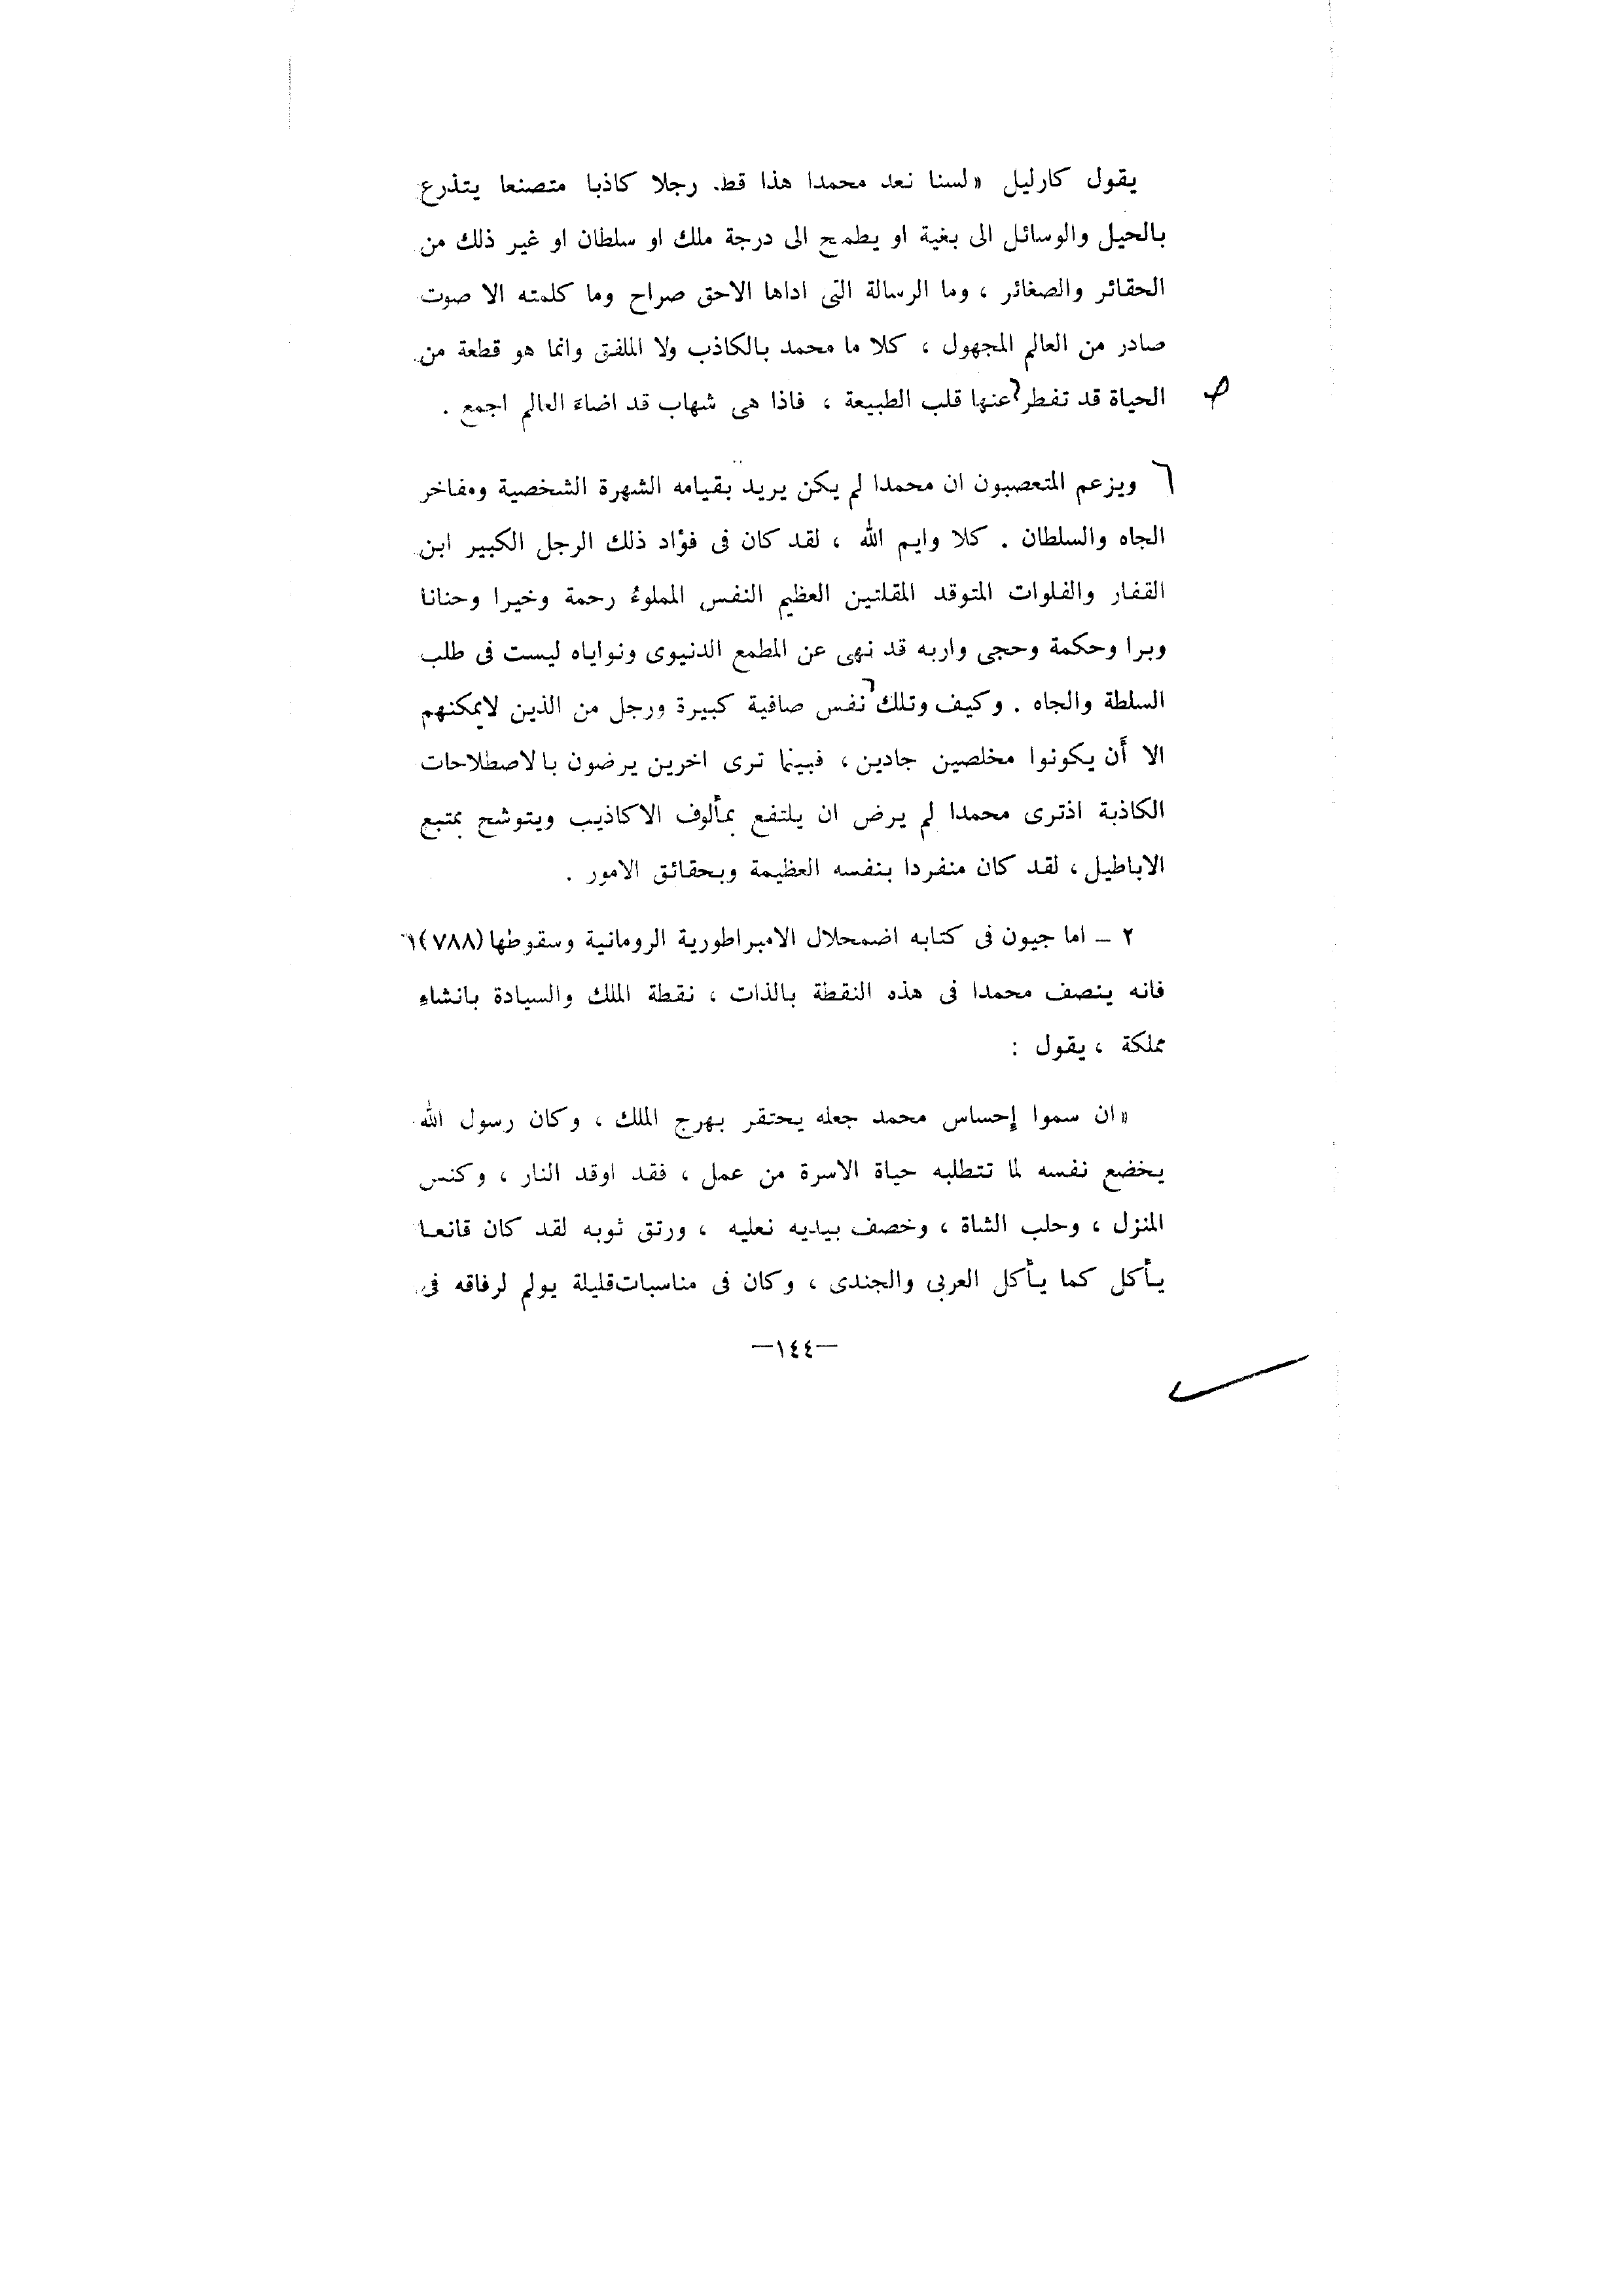 يقول كارليل «لسنا نعد محمدا هذا قط. رجلا كاذبا متصنعا يتذرع
بالحيل والوسائل الى بغية او يطمح الى درجة ملك او سلطان او غير ذلك من
الحقائر والصغائر ، وما الرسالة التى اداها الاحق صراح وما كلمته الا صوت
صادر من العالم المجهول ، كلا ما محمد بالكاذب ولا الملفق وانما هو قطعة من
الحياة قد تفطر عنها قلب الطبيعة ، فاذا هى شهاب قد اضاء العالم اجمع .
ويزعم المتعصبون ان محمدا لم يكن يريد بقيامه الشهرة الشخصية ومفاخر
الجاه والسلطان . كلا وايم الله ، لقد كان فى فؤاد ذلك الرجل الكبير ابن
القفار والفلوات المتوقد المقلتين العظيم النفس المملوء رحمة وخيرا وحنانا
وبرا وحكمة وحجى واربه قد نهى عن المطمع الدنيوى ونواياه ليست فى طلب
السلطة والجاه . وكيف وتلك نفس صافية كبيرة ورجل من الذين لايمكنهم
الا أن يكونوا مخلصين جادين ، فبينما ترى اخرين يرضون بالاصطلاحات
الكاذبة اذترى محمدا لم يرض ان يلتفع بمألوف الاكاذيب ويتوشح بمتبع
الاباطيل ، لقد كان منفردا بنفسه العظيمة وبحقائق الامور .
٢ – اما جيبون فى كتابه اضمحلال الامبراطورية الرومانية وسقوطها (٧٨٨)
فانه ينصف محمدا فى هذه النقطة بالذات ، نقطة الملك والسيادة بانشاء
مملكة ، يقول :
«ان سموا إحساس محمد جعله يحتقر بهرج الملك ، وكان رسول الله
يخضع نفسه لما تتطلبه حياة الاسرة من عمل ، فقد اوقد النار ، وكنس
المنزل ، وحلب الشاة ، وخصف بيديه نعليه ، ورتق ثوبه لقد كان قانعا
يأكل كما يأكل العربى والجندى ، وكان فى مناسبات قليلة يولم لرفاقه فى
—١٤٤—